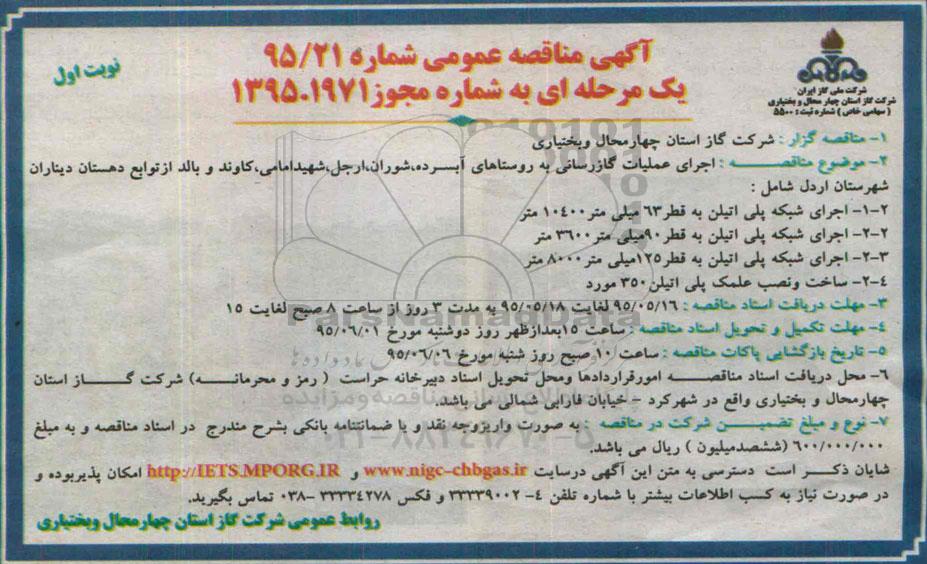 آگهی مناقصه عمومی شماره ۹۵/۲۱
یک مرحله ای به شماره مجوز ۱۳۹۵.۱۹۷۱
نوبت اول
شرکت ملی گاز ایران
شرکت گاز استان چهار محال و بختیاری
( سهامی خاص ) شماره ثبت : ۵۵۰۰
۱- مناقصه گزار : شرکت گاز استان چهارمحال وبختیاری
۲- موضوع مناقصه : اجرای عملیات گازرسانی به روستاهای آبسرده،شوران،ارجل،شهیدامامی،کاوند و بالد ازتوابع دهستان دیناران
شهرستان اردل شامل :
۲-۱- اجرای شبکه پلی اتیلن به قطر ۶۳ میلی متر ۱۰۴۰۰ متر
۲-۲- اجرای شبکه پلی اتیلن به قطر ۹۰میلی متر ۳۶۰۰ متر
۲-۳- اجرای شبکه پلی اتیلن به قطر ۱۲۵میلی متر ۸۰۰۰ متر
۲-۴- ساخت ونصب علمک پلی اتیلن ۳۵۰ مورد
۳- مهلت دریافت اسناد مناقصه : ۹۵/۰۵/۱۶ لغایت ۹۵/۰۵/۱۸ به مدت ۳ روز از ساعت ۸ صبح لغایت ۱۵
۴- مهلت تکمیل و تحویل اسناد مناقصه : ساعت ۱۵بعدازظهر روز دوشنبه مورخ ۹۵/۰۶/۰۱
۵- تاریخ بازگشایی پاکات مناقصه : ساعت ۱۰ صبح روز شنبه مورخ ۹۵/۰۶/۰۶
۶- محل دریافت اسناد مناقصه امورقراردادها ومحل تحویل اسناد دبیرخانه حراست ( رمز و محرمانه) شرکت گاز استان
چهارمحال و بختیاری واقع در شهرکرد - خیابان فارابی شمالی می باشد.
۷- نوع و مبلغ تضمین شرکت در مناقصه : به صورت واریزوجه نقد و یا ضمانتنامه بانکی بشرح مندرج در اسناد مناقصه و به مبلغ
۶۰۰/۰۰۰/۰۰۰ (ششصدمیلیون ) ریال می باشد.
شایان ذکر است دسترسی به متن این آگهی درسایت www.nigc-chbgas.ir و http://IETS.MPORG.IR امکان پذیربوده و
در صورت نیاز به کسب اطلاعات بیشتر با شماره تلفن ۴- ۳۳۳۳۹۰۰۲ و فکس ۳۳۳۳۴۲۷۸ -۰۳۸ تماس بگیرید.
روابط عمومی شرکت گاز استان چهارمحال وبختیاری
ParsNamadData